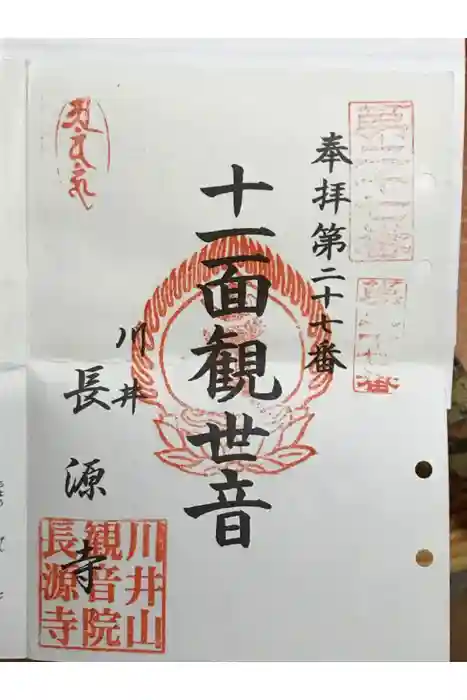 奉拝第二十七番
十一面観世音
川井
長源寺
川井山
観音院
長源寺